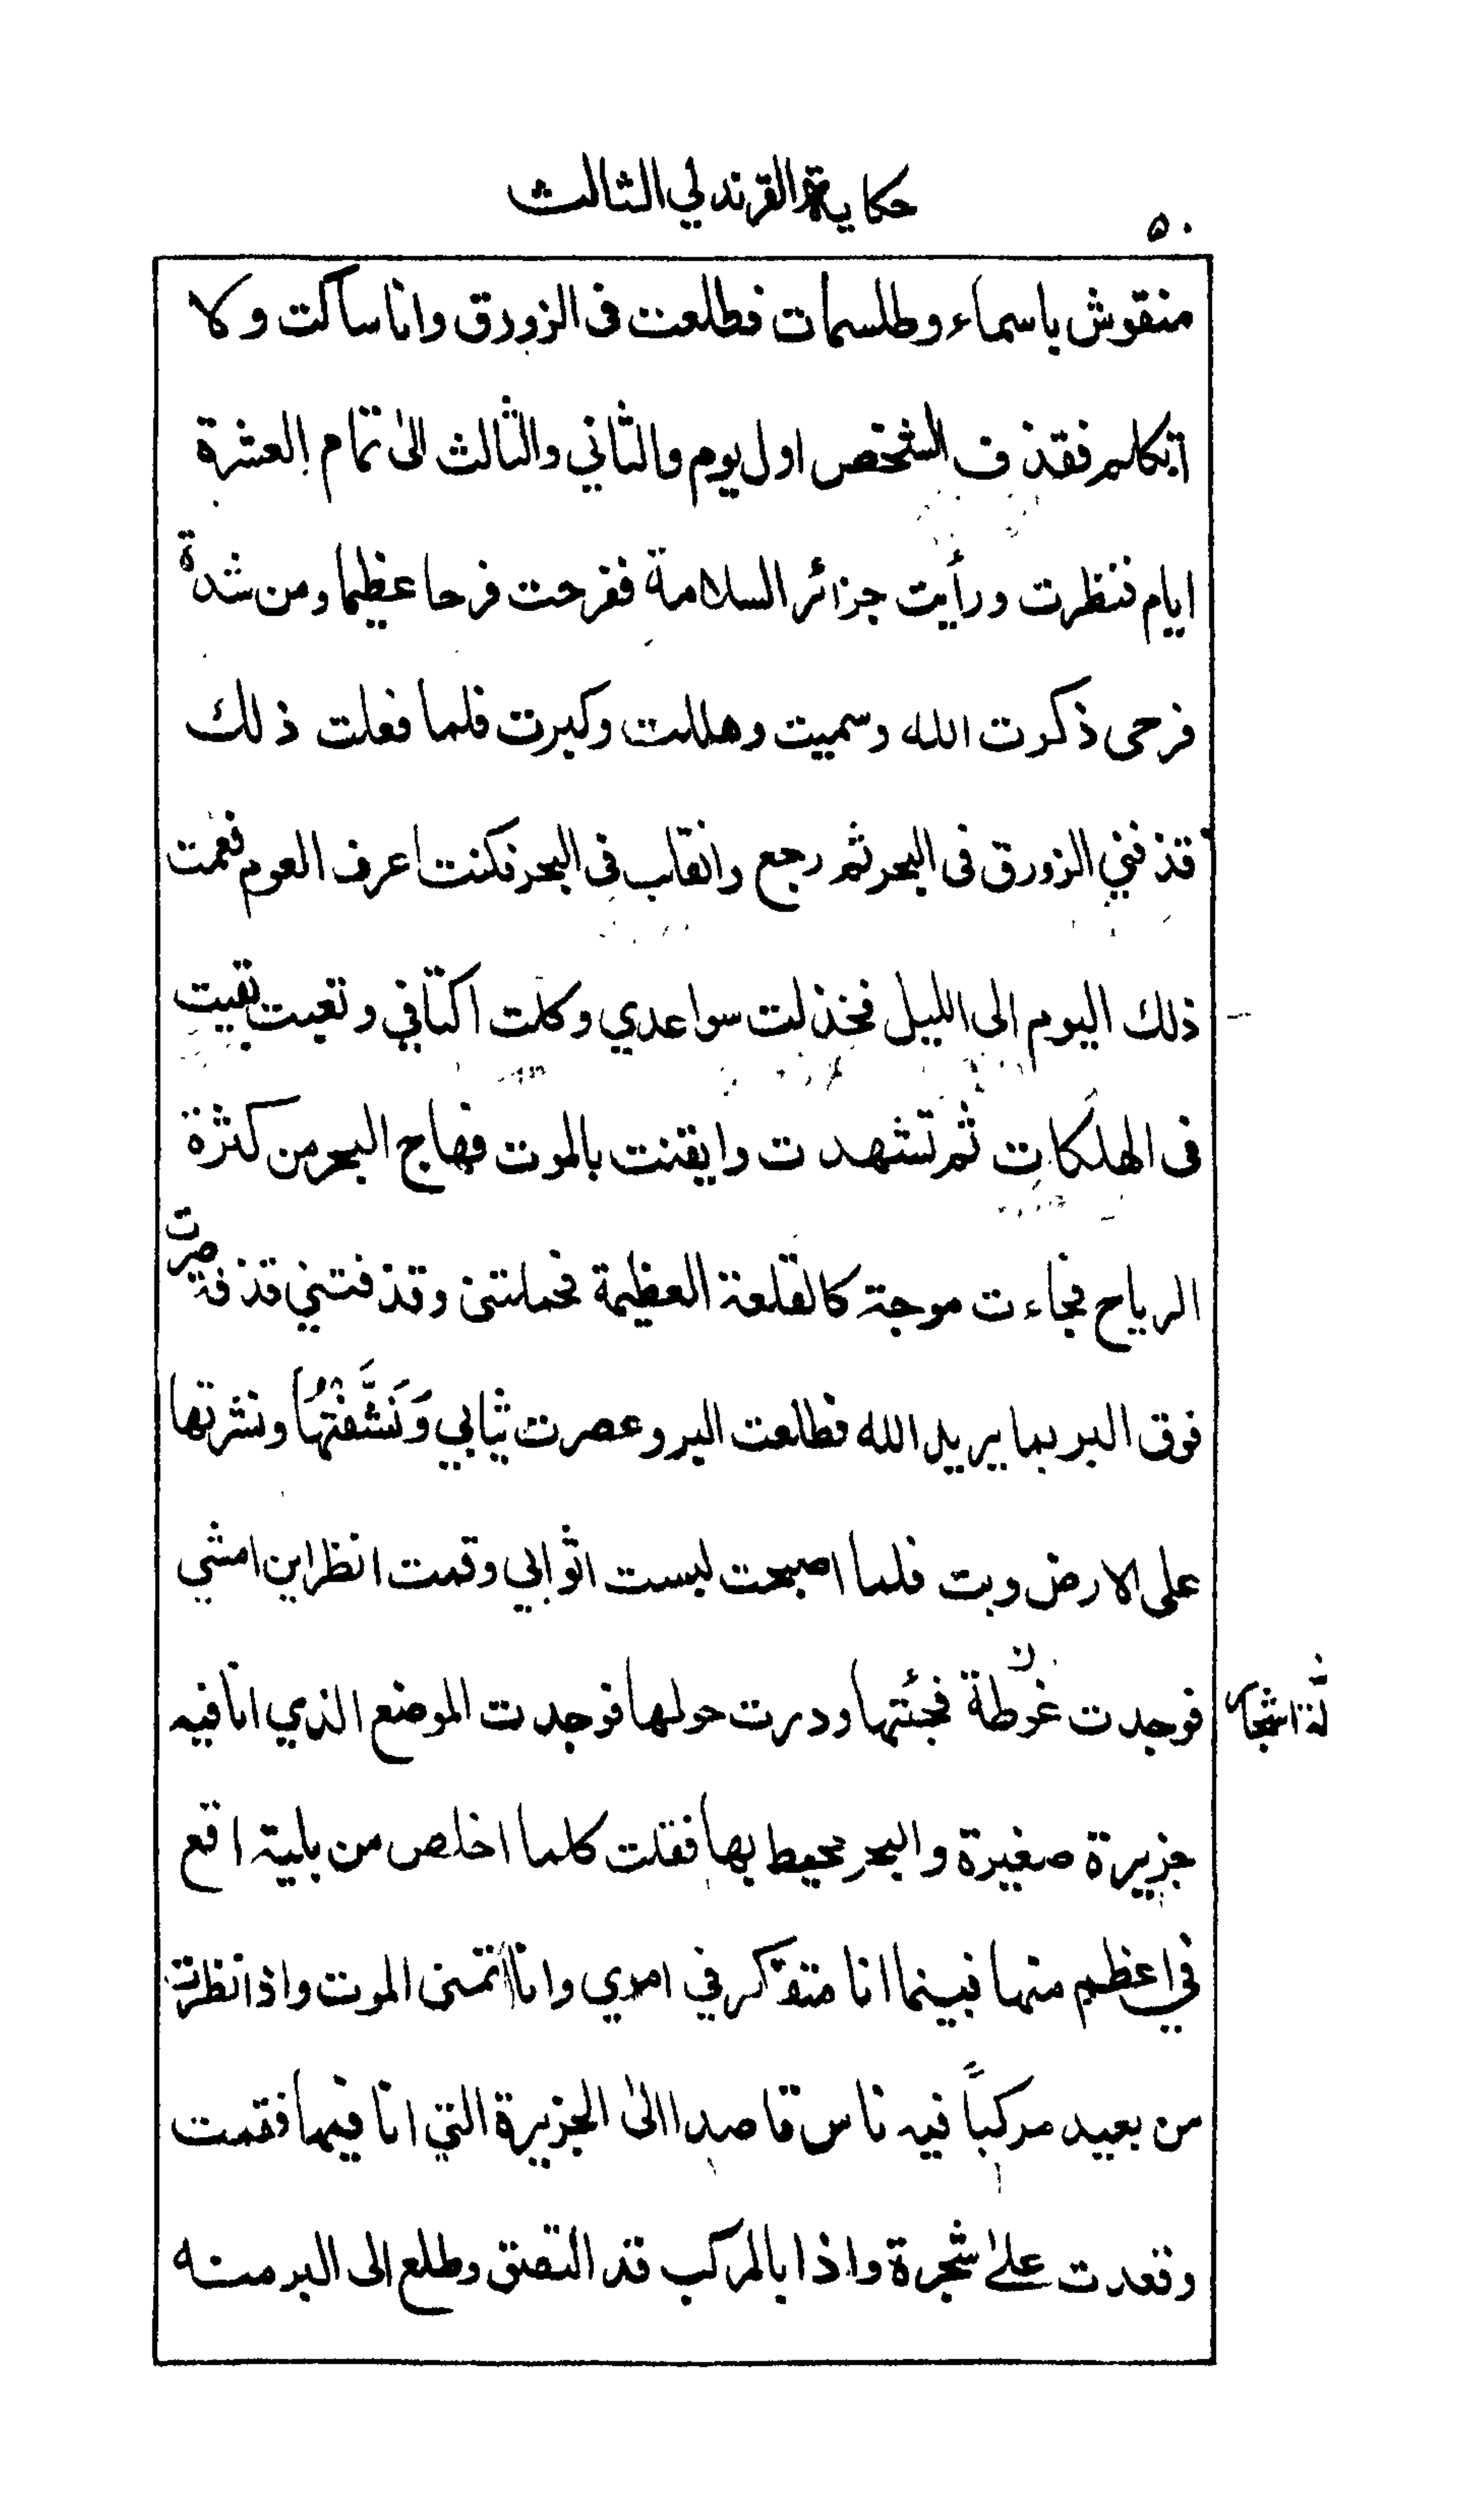 حكاية القرندلي الثالث
٥٠
منقوش باسماء وطلسمات فطلعت فى الزورق وانا ساكت وكلا
اتكلم فقذف الشخص اول يوم والثاني والثالث الى تمام العشرة
ايام فنظرت ورأيت جزائر السلامة ففرحت فرحا عظيما ومن شدة
فرحى ذكرت الله وسميت وهللت وكبرت فلما فعلت ذلك
قذفني الزورق فى البحر ثم رجع وانقلب فى البحر فكنت اعرف العوم فعمت
ذلك اليوم الى الليل فخذلت سواعدي وكلت اكتافي وتعبت بقيت
فى الهلكات ثم تشهدت وايقنت بالموت فهاج البحر من كثرة
الرياح فجاءت موجة كالقلعة العظيمة فحملتنى وقذفتني قذفة صرت
فوق البر بما يريد الله فطلعت البر وعصرت ثيابي وَنَشَّفْتُهَا ونشرتها
على الارض وبت فلما اصبحت لبست اثوابي وقمت انظر اين امشي
فوجدت غوطة فجئتها ودرت حولها فوجدت الموضع الذي انا فيه
جزيرة صغيرة والبحر محيط بها فقلت كلما اخلص من بلية اقع
في اعظم منها فبينما انا متفكر في امري وانا اتمنى الموت واذا نظرت
من بعيد مركباً فيه ناس قاصدا الى الجزيرة التي انا فيها فقمت
وقعدت على شجرة واذا بالمركب قد التصق وطلع الى البر منه